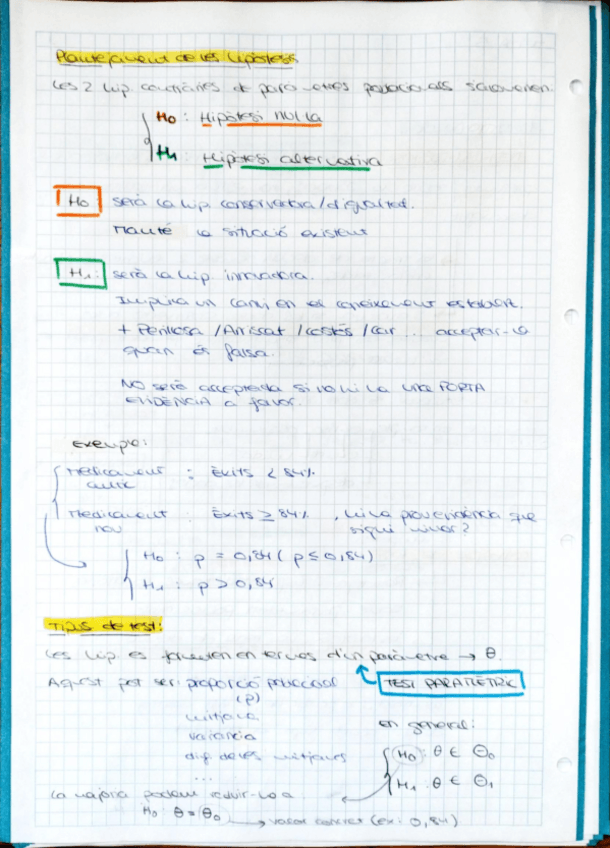 Plantejament de les hipòtesis
Les 2 hip. contràries de paràmetres poblacionals s'anomenen
H0 : Hipòtesi nul·la
H1 : Hipòtesi alternativa
H0 serà la hip. conservadora/d'igualtat.
Manté la situació existent
H1: serà la hip. innovadora.
Implica un canvi en el coneixement establert.
+ Perillosa /Arriscat /costós /car ... acceptar-la
quan és falsa.
NO serà acceptada si no hi ha una FORTA
EVIDÈNCIA a favor.
Exemple:
Medicament : Èxits < 84%
antic
Medicament : Èxits ≥ 84% , hi ha prou evidència que
nou sigui millor?
H0 : p = 0,84 ( p ≤ 0,84)
H1 : p > 0,84
Tipus de test:
Les hip. es formulen en termes d'un paràmetre → θ.
Aquest pot ser: proporció poblacional TEST PARAMÈTRIC
(p)
mitjana
en general:
variància
dif. de les mitjanes
H0 : θ ∈ Θ0
...
H1 : θ ∈ Θ1
La majoria podem reduir-ho a
H0 : θ = θ0 → valor concret (ex: 0,84)